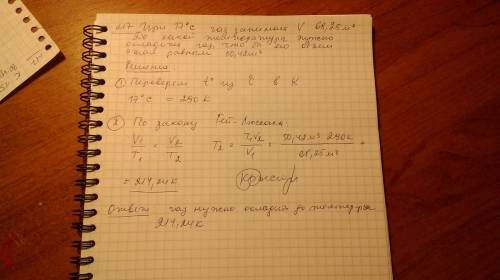 217 При 17°С газ занимает V 68,25м³
До какой температуры нужно
охладить газ, что его объем
стал равным 50,42м³
Решение
① Переведем t° из С в К
17°С = 290К
② По закону Гей-Люссака:
V₁/T₁ = V₂/T₂ T₂ = T₁V₂/V₁ = 50,42м³ 290К/68,25м³ =
= 214,24К
Ответ газ нужно охладить до температуры
214,24К